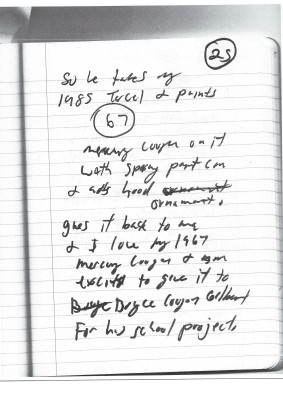 25
So he takes my
1985 Tercel & paints
67
mercury cougar on it
with spray paint can
& adds hood
ornament.
gives it back to me
& I love my 1967
mercury cougar & am
excited to give it to
Doyce Cougar
For his school project.